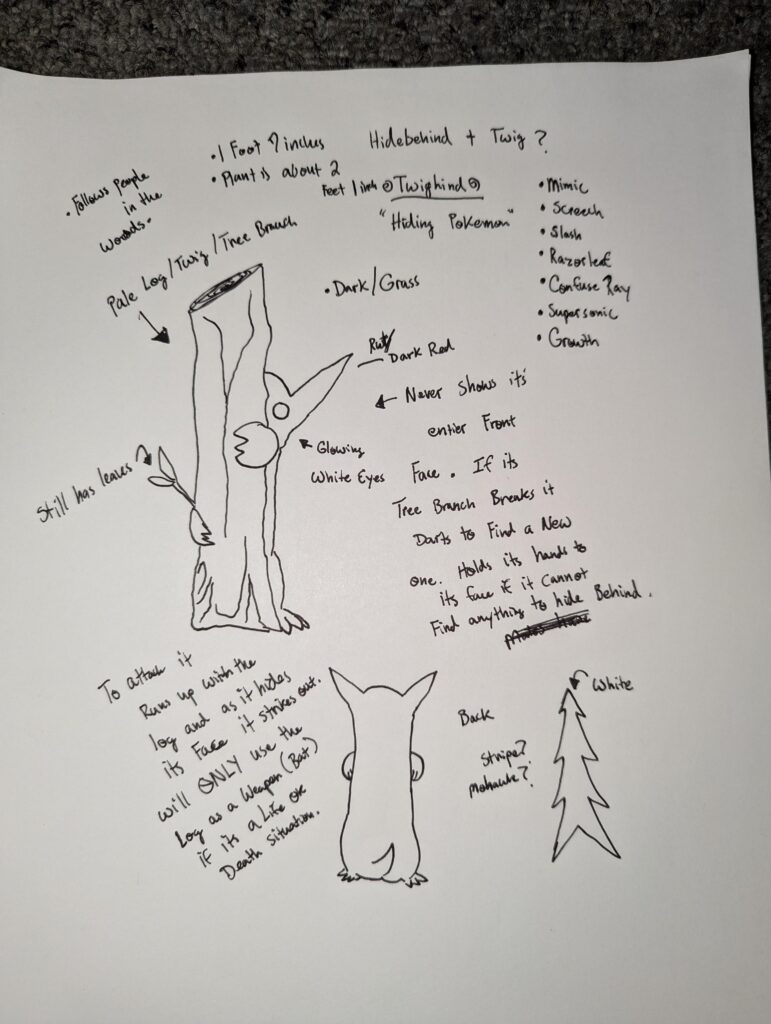 • 1 Foot 7 inches
• Plant is about 2
Feet 1 inch
Hidebehind + Twig?
• Follows people
in the
woods.
Twighind
"Hiding Pokemon"
• Mimic
• Screech
• Slash
• Razorleaf
• Confuse Ray
• Supersonic
• Growth
Pale Log/Twig/Tree Branch
• Dark/Grass
Dark Red
Never Shows its'
entier Front
Face. If its
Tree Branch Breaks it
Darts to Find a New
one. Holds its hands to
its face if it cannot
Find anything to hide Behind.
Glowing
White Eyes
Still has leaves
To attack it
Runs up with the
log and as it hides
its Face it strikes out.
will ONLY use the
Log as a Weapon (Bat)
if its a Life or
Death situation.
Back
White
Stripe?
Mohawk?